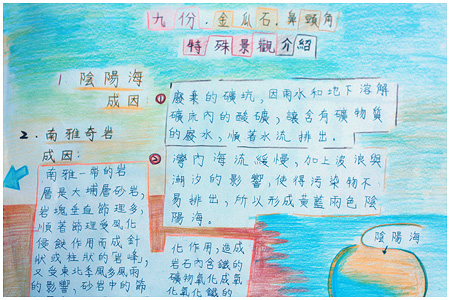 九份.金瓜石.鼻頭角
特殊景觀介紹
1.陰陽海
成因:
①廢棄的礦坑,因雨水和地下溶解
礦床內的酸礦,讓含有礦物質
的廢水,順著水流排出.
②灣內海流緩慢,加上波浪與
潮汐的影響,使得污染物不
易排出,所以形成黃藍兩色陰
陽海。
2.南雅奇岩
成因:
南雅一帶的岩
層是大埔層砂岩,
岩塊垂直節理多,
順著節理受風化
侵蝕作用而成針
狀或柱狀的岩峰,
又受東北季風多風雨
的影響,砂岩中的節
化作用,造成
岩石內含鐵的
礦物氧化成氧
化氧化鐵的
陰陽海